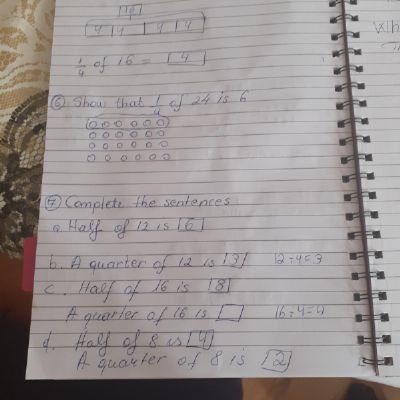 4 | 4 | 4 | 4
1/4 of 16 = 4
⑥ Show that 1/4 of 24 is 6
⑦ Complete the sentences
a. Half of 12 is 6
b. A quarter of 12 is 3 12÷4=3
c. Half of 16 is 8
A quarter of 16 is 16÷4=4
d. Half of 8 is 4
A quarter of 8 is 2